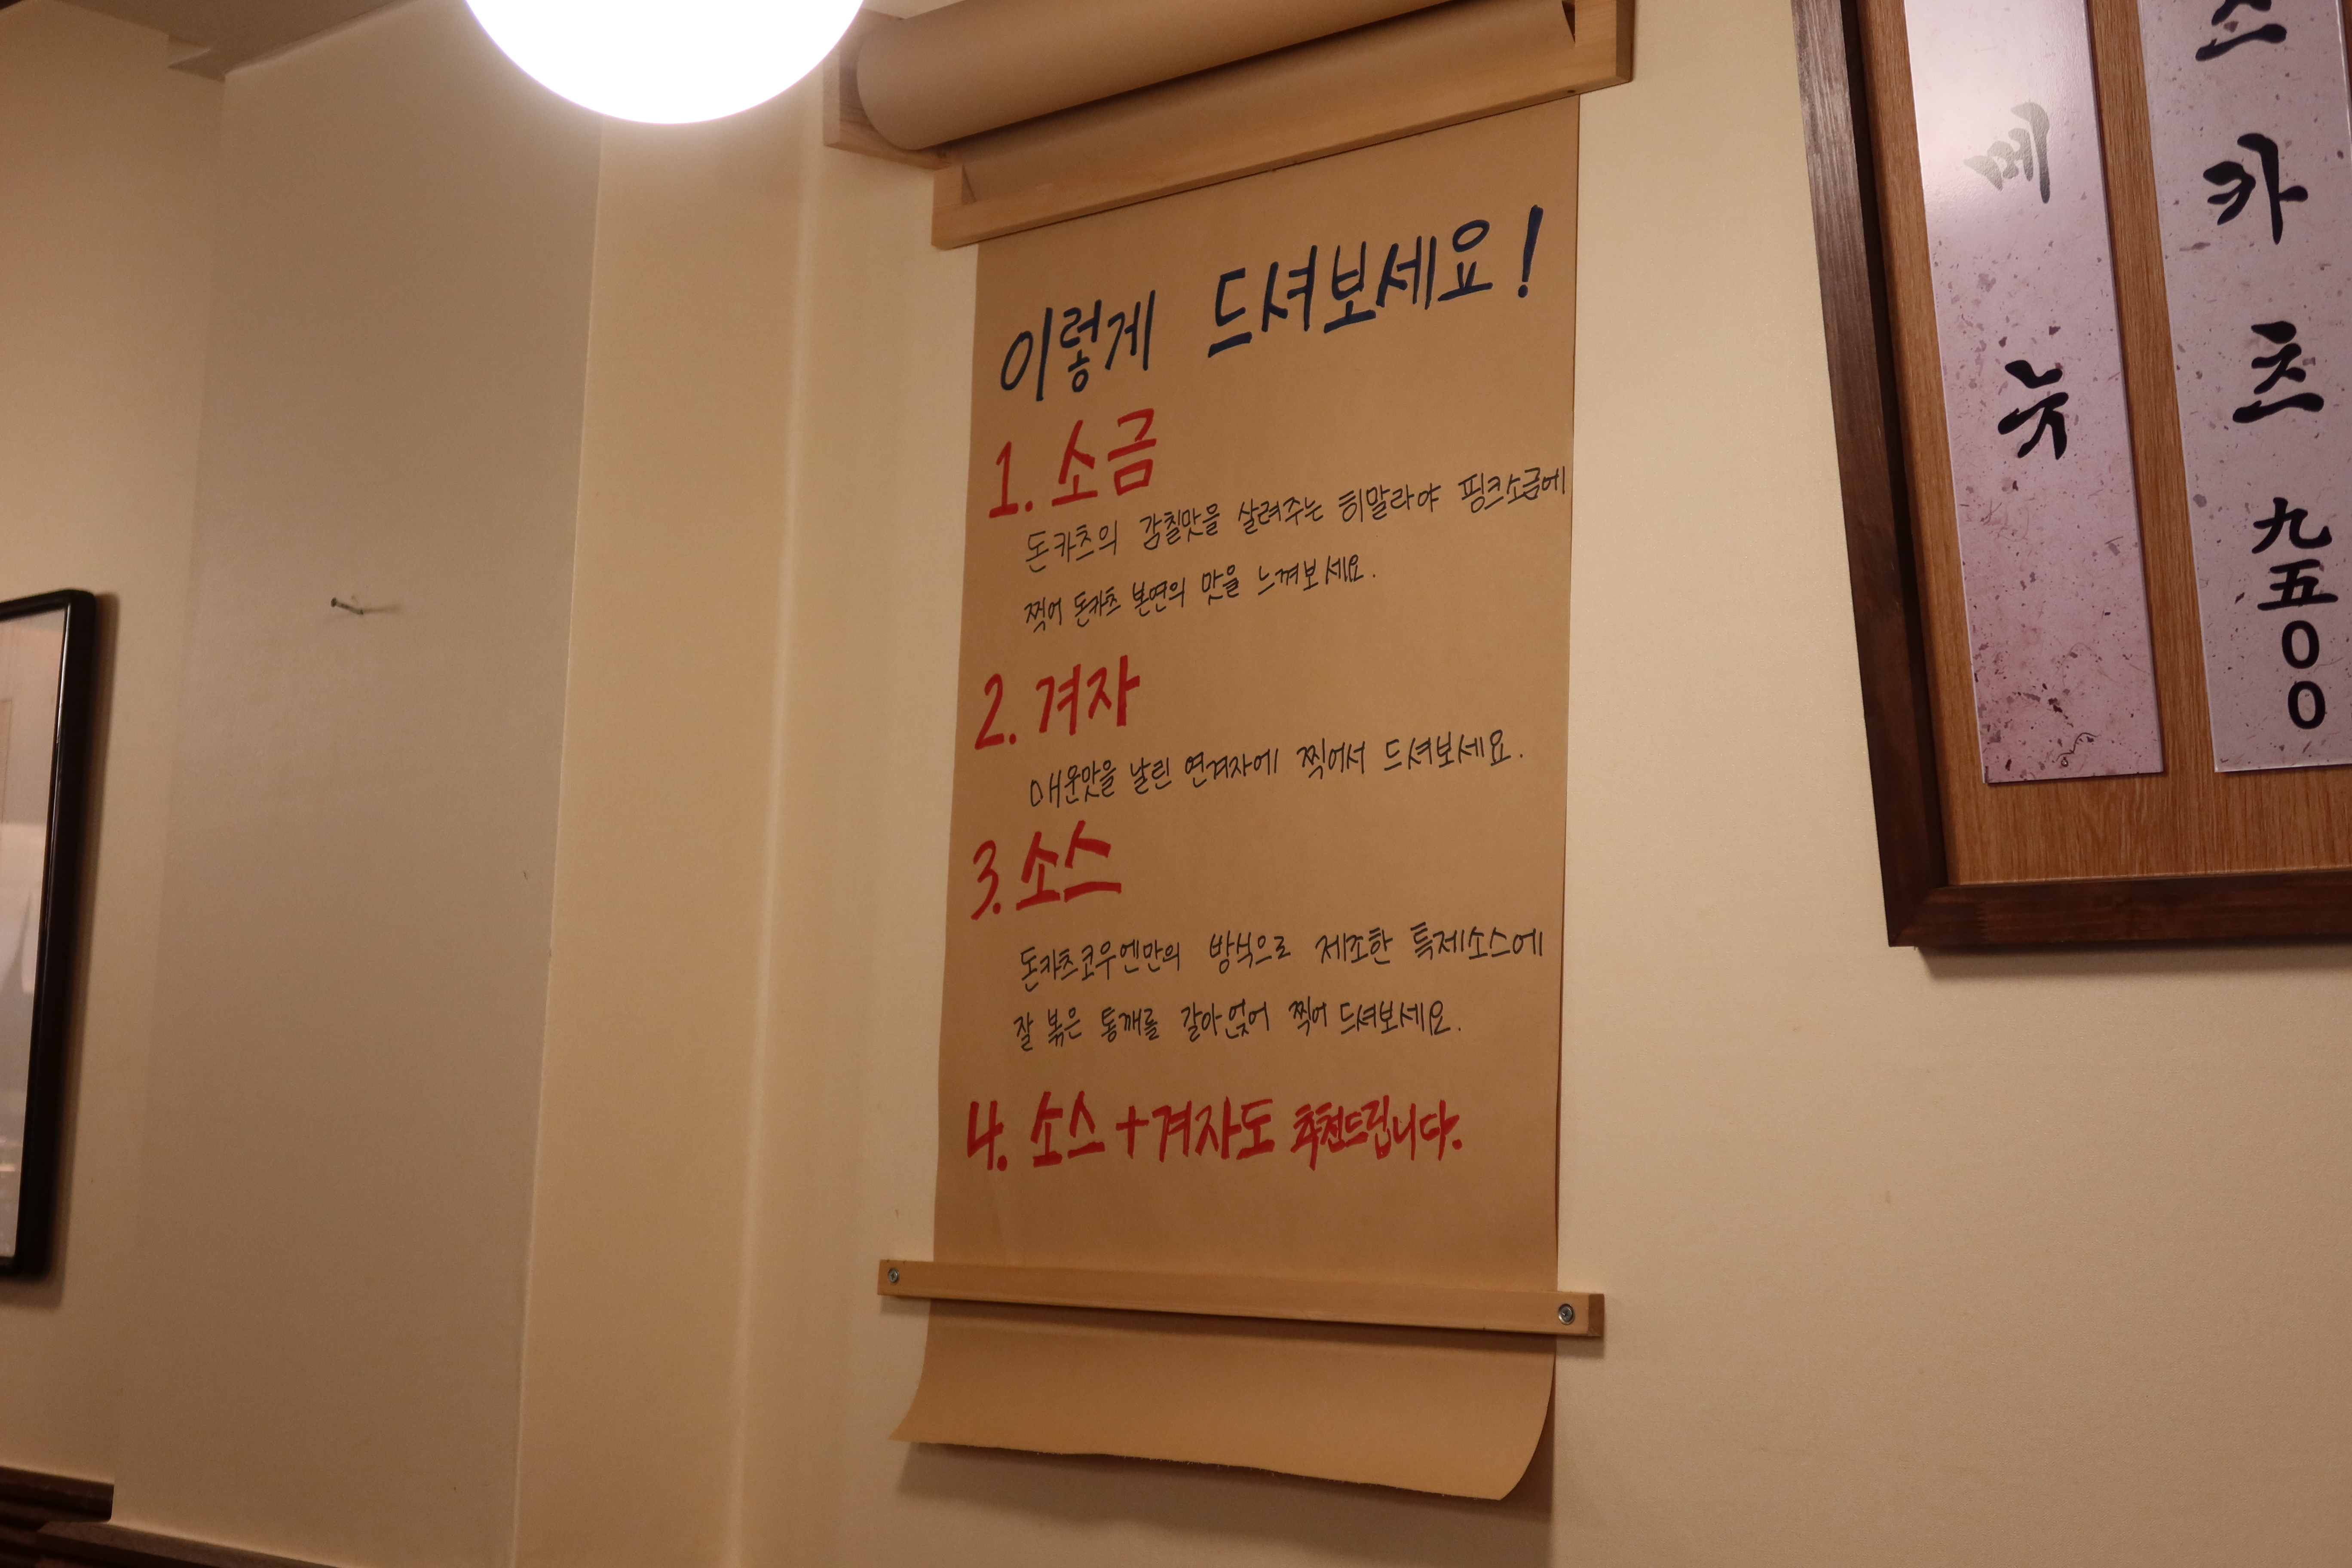 이렇게 드셔보세요!
1. 소금
돈카츠의 감칠맛을 살려주는 히말라야 핑크소금에
찍어 돈카츠 본연의 맛을 느껴보세요.
2. 겨자
매운맛을 날린 연겨자에 찍어서 드셔보세요.
3. 소스
돈카츠코우엔만의 방식으로 제조한 특제소스에
잘 볶은 통깨를 갈아 얹어 찍어 드셔보세요.
4. 소스+겨자도 추천드립니다.
메뉴
스카츠 九五00